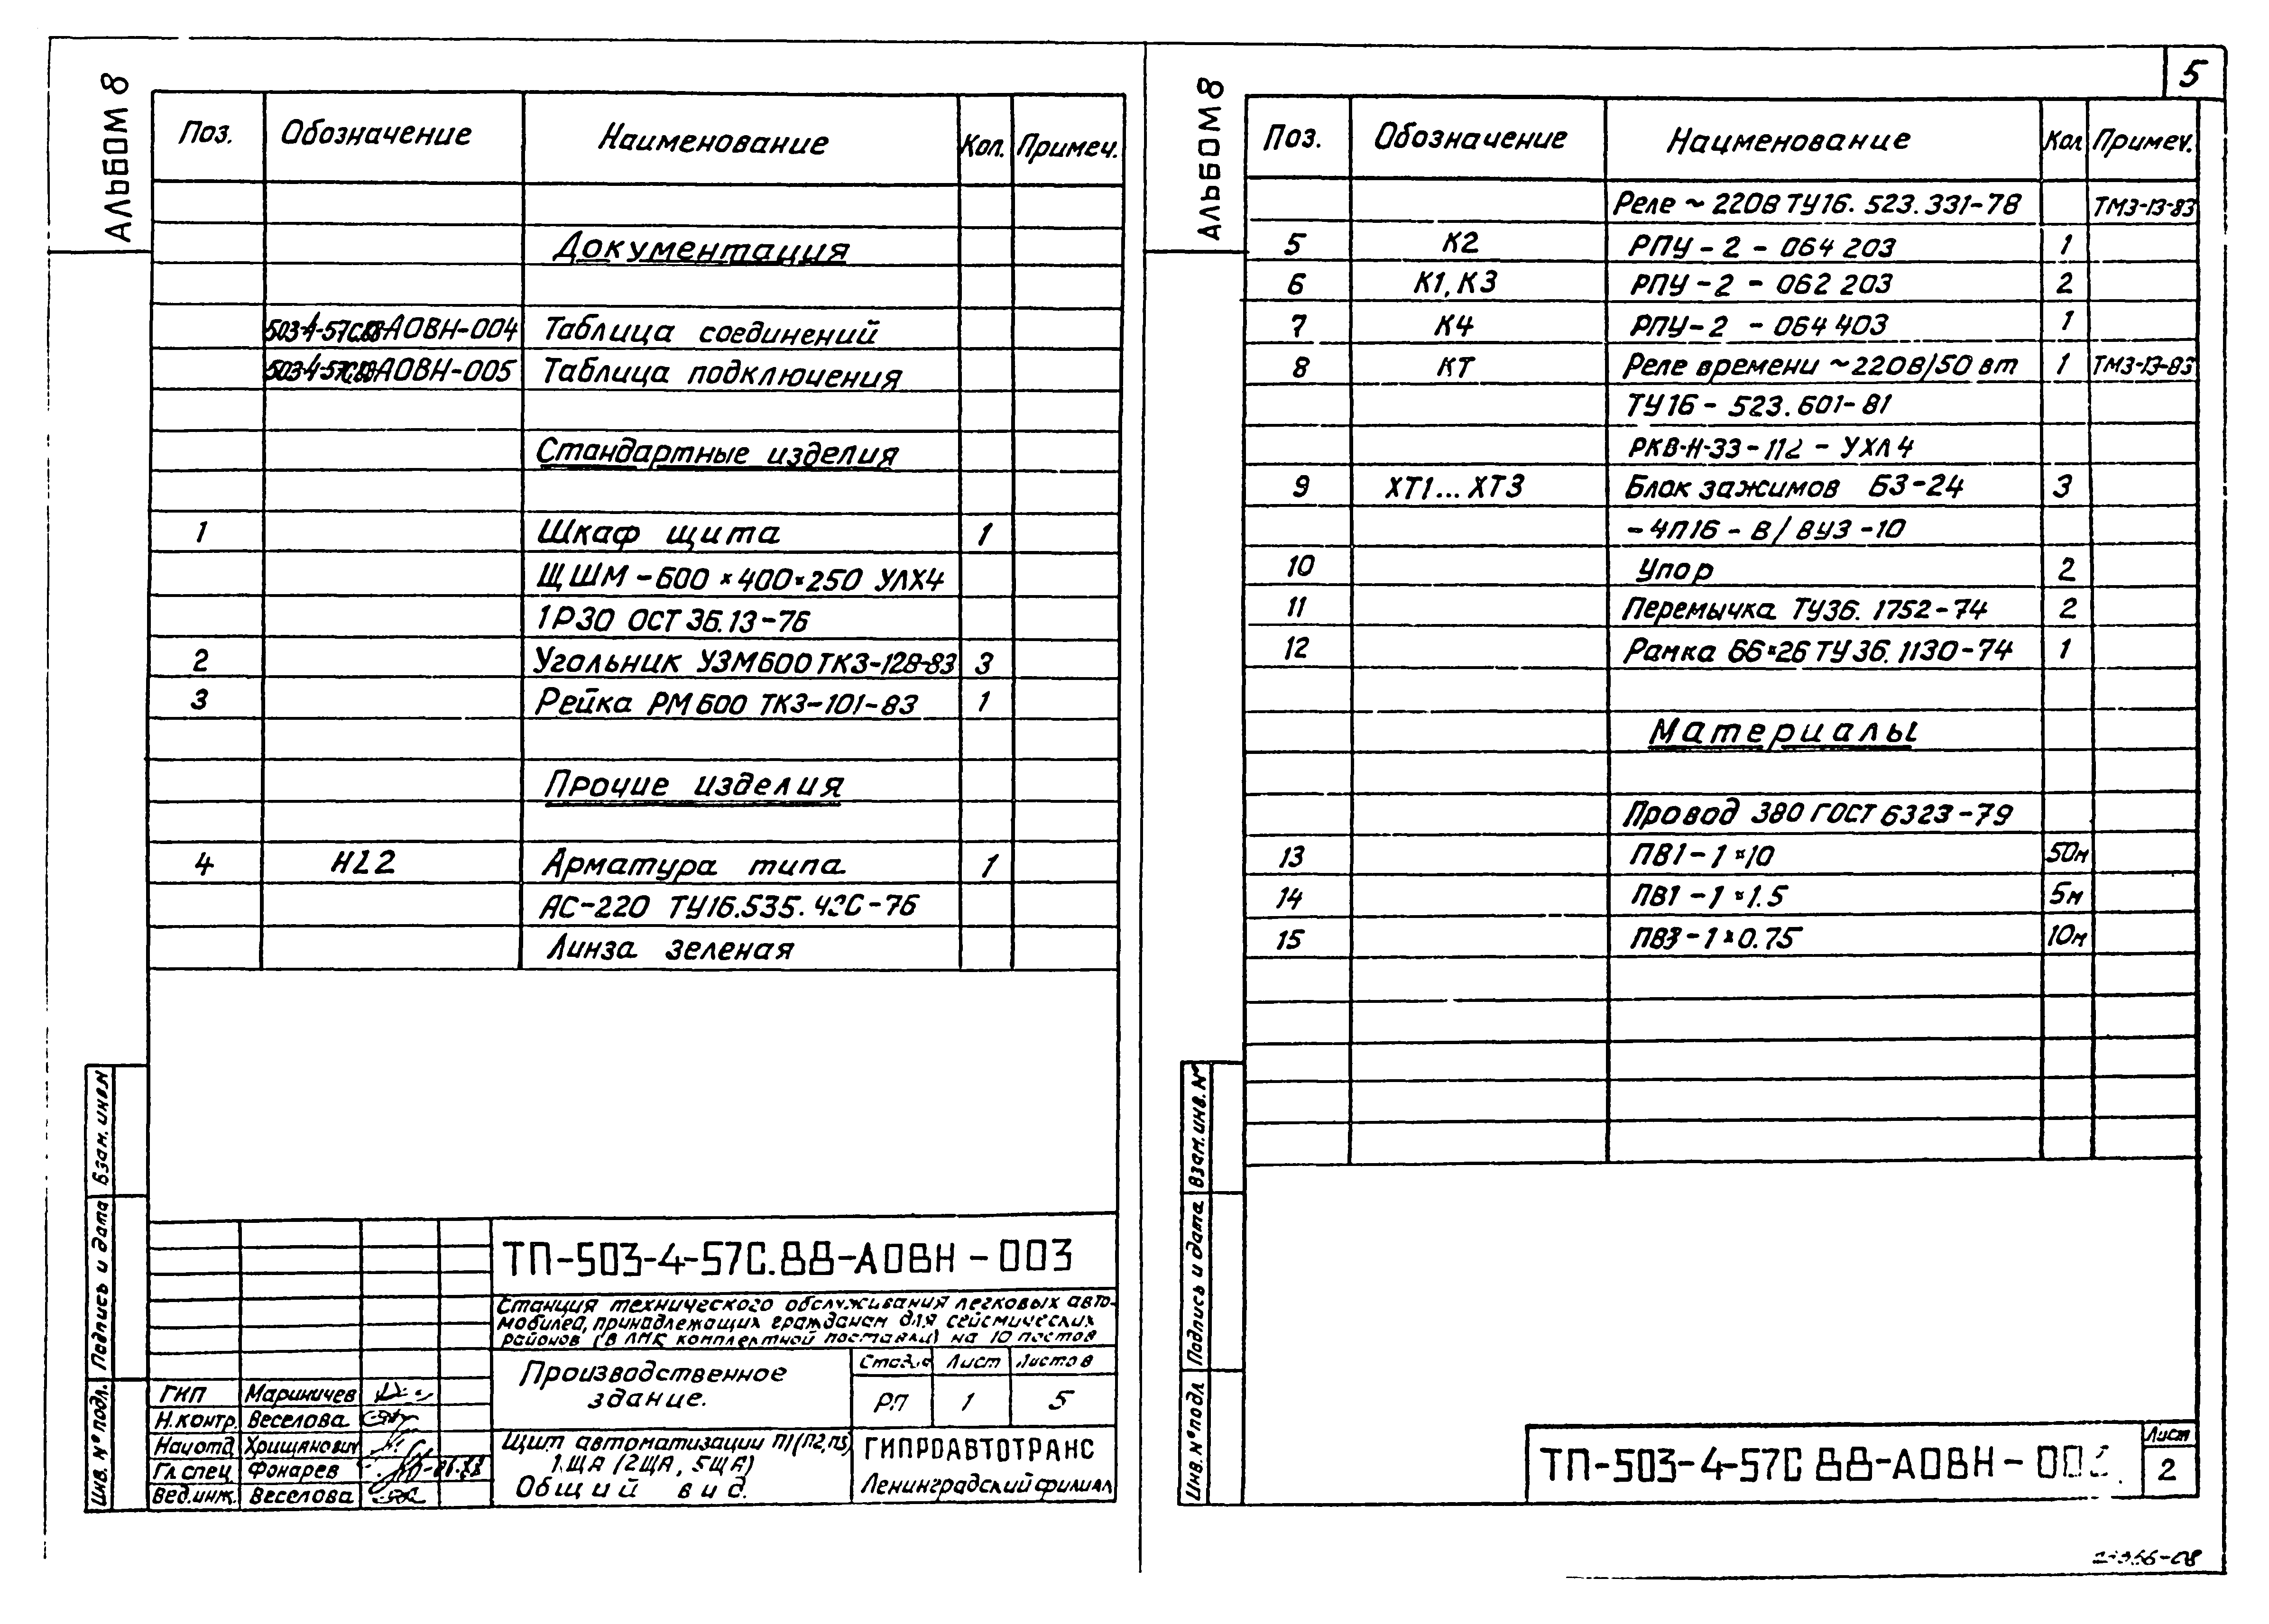 АЛЬБОМ 8
Поз. Обозначение Наименование Кол. Примеч.
Документация
503-4-57С.88-АОВН-004 Таблица соединений
503-4-57С.88-АОВН-005 Таблица подключения
Стандартные изделия
1 Шкаф щита 1
ЩШМ-600×400×250 УЛХ4
1Р30 ОСТ 36.13-76
2 Угольник УЗМ600 ТК3-128-83 3
3 Рейка РМ600 ТК3-101-83 1
Прочие изделия
4 HL2 Арматура типа 1
АС-220 ТУ16.535.
Линза зеленая
ТП-503-4-57С.88-АОВН-003
Станция технического обслуживания легковых авто-
мобилей, принадлежащих гражданам для сейсмических
районов (в ЛМК комплектной поставки) на 10 постов
Производственное
здание.
Стадия Лист Листов
РП 1 5
Щит автоматизации П1(П2,П3)
1ЩА (2ЩА, 5ЩА)
Общий вид.
ГИПРОАВТОТРАНС
Ленинградский филиал
ГИП Мариничев
Н.контр. Веселова
Нач.отд. Хрищанович
Гл.спец. Фонарев
Вед.инж. Веселова
Инв. № подл. Подпись и дата Взам. инв. №
5
АЛЬБОМ 8
Поз. Обозначение Наименование Кол Примеч.
Реле ~ 220В ТУ16.523.331-78 ТМ3-13-83
5 К2 РПУ-2-064 203 1
6 К1, К3 РПУ-2-062 203 2
7 К4 РПУ-2-064 403 1
8 КТ Реле времени ~220В/50 вт 1 ТМ3-13-83
ТУ16-523.601-81
РКВ-Н-33-112-УХЛ4
9 ХТ1...ХТ3 Блок зажимов БЗ-24 3
-4П16-В/ВУ3-10
10 Упор 2
11 Перемычка ТУ36.1752-74 2
12 Рамка 66×26 ТУ36.1130-74 1
Материалы
Провод 380 ГОСТ 6323-79
13 ПВ1-1×10 50м
14 ПВ1-1×1.5 5м
15 ПВ3-1×0.75 10м
Инв. № подл Подпись и дата Взам. инв. №
ТП-503-4-57С.88-АОВН-
Лист
2